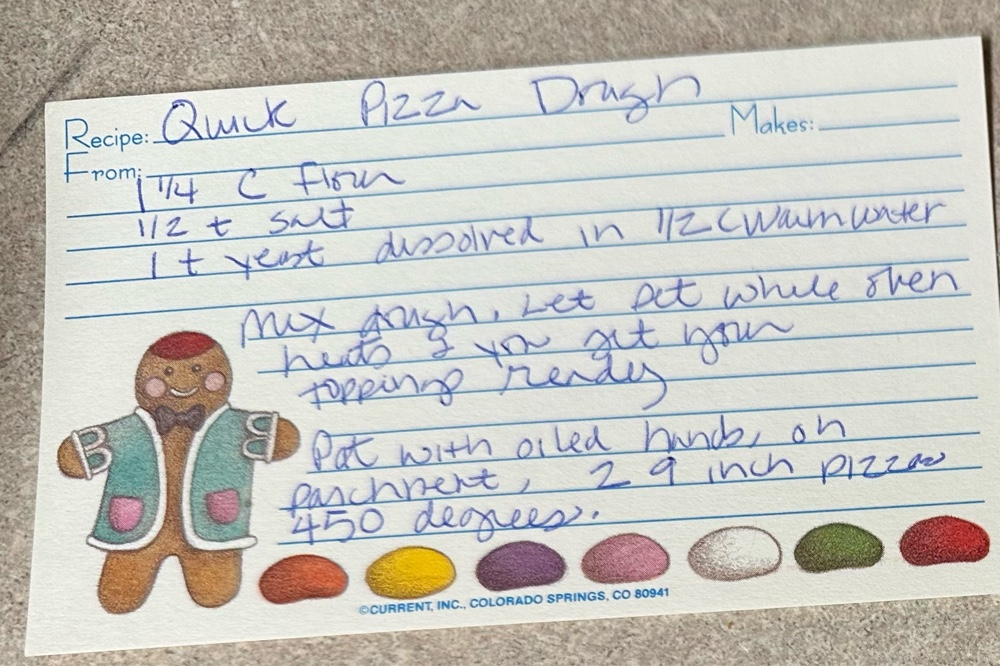 Recipe: Quick Pizza Dough
Makes:
From:
1 1/4 C flour
1/2 t salt
1 t yeast dissolved in 1/2 C warm water
Mix dough, Let set while oven
heats & you get your
toppings ready
Pat with oiled hands, on
parchment, 2 9 inch pizzas
450 degrees.
©CURRENT, INC., COLORADO SPRINGS, CO 80941